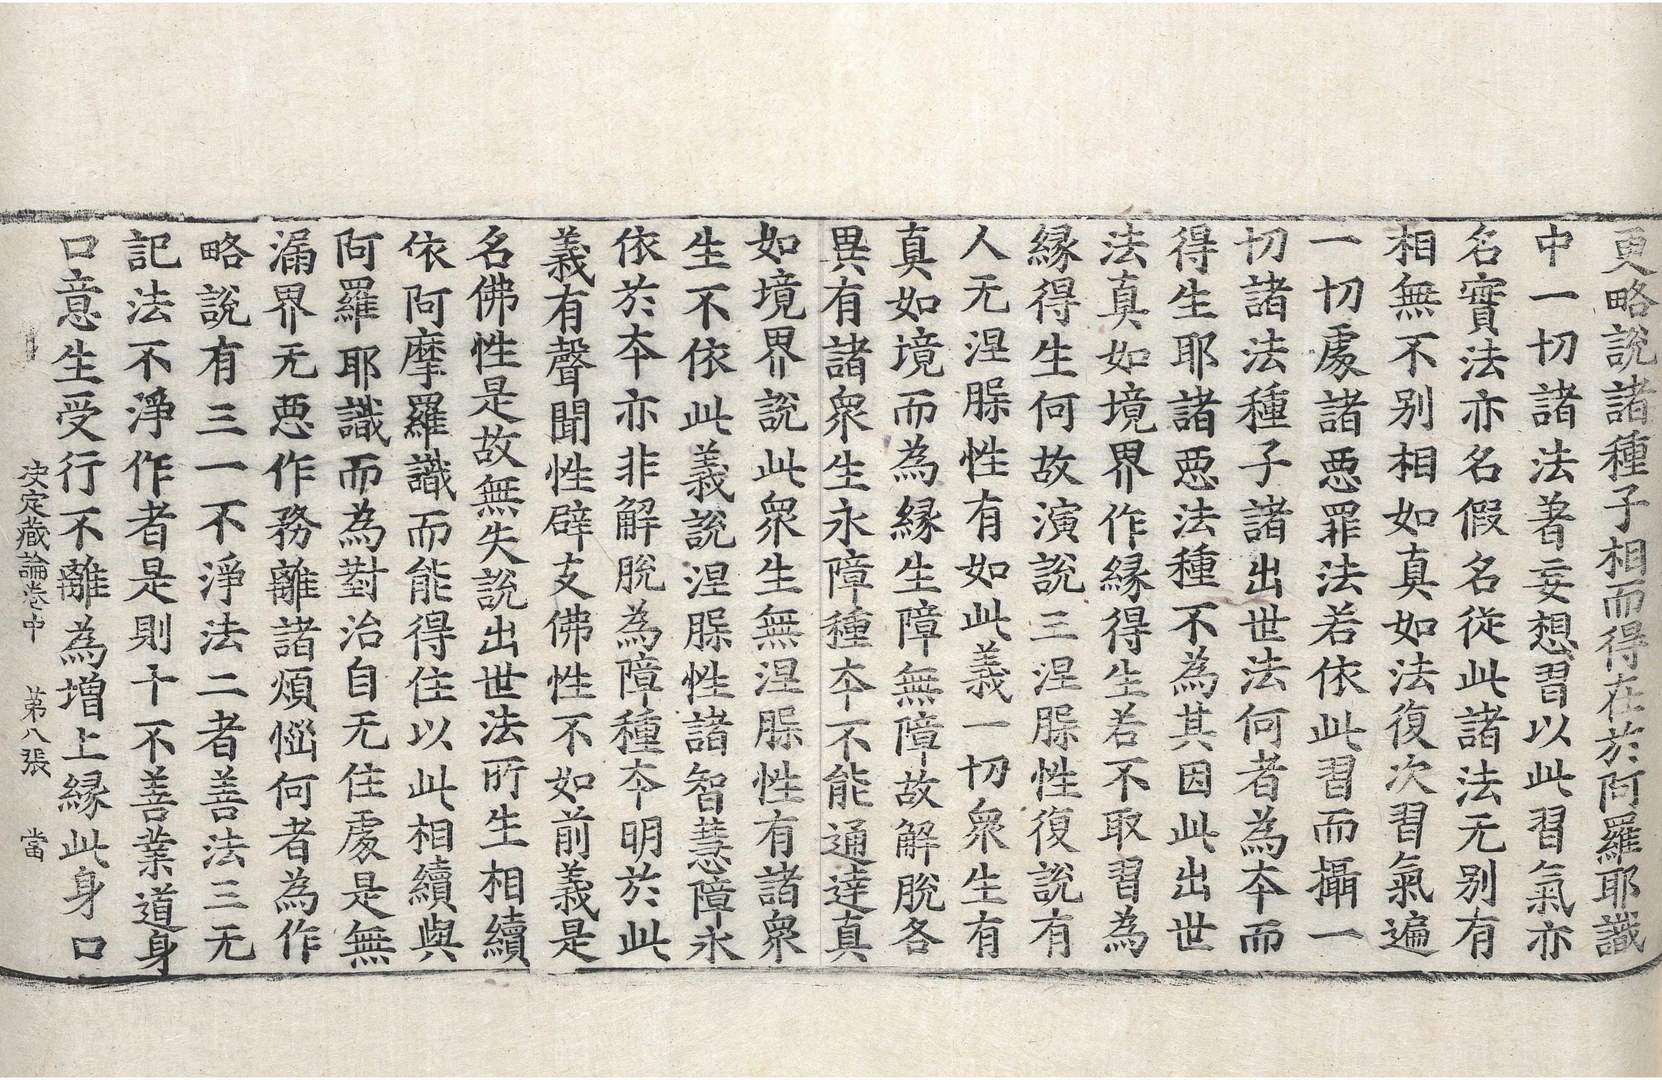 更略說諸種子相而得在於阿羅耶識
中一切諸法著妄想習以此習氣亦
名實法亦名假名從此諸法无別有
相無不別相如真如法復次習氣遍
一切處諸惡罪法若依此習而攝一
切諸法種子諸出世法何者為夲而
得生耶諸惡法種不為其因此出世
法真如境界作縁得生若不取習為
縁得生何故演說三涅脲性復說有
人无涅脲性有如此義一切衆生有
真如境而為縁生障無障故解脫各
異有諸衆生永障種夲不能通達真
如境界說此衆生無涅脲性有諸衆
生不依此義說涅脲性諸智慧障永
依於夲亦非解脫為障種夲明於此
義有聲聞性辟支佛性不如前義是
名佛性是故無失說出世法所生相續
依阿摩羅識而能得住以此相續與
阿羅耶識而為對治自无住處是無
漏界无惡作務離諸煩惱何者為作
略說有三一不淨法二者善法三无
記法不淨作者是則十不善業道身
口意生受行不離為增上縁此身口
決定藏論卷中　第八張　當